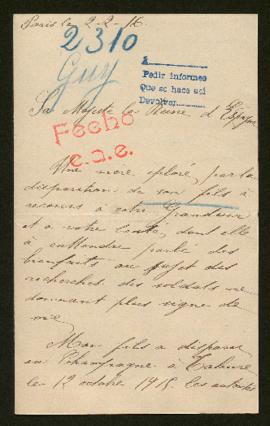 Paris le 2-2-16
2310
Guy
A
Pedir informes
Que se hace así
Devolver
Sa Majesté la Reine d'Espagne
Fecho
c.a.e.
Une mère éplorée, par la
disparition de son fils à
recours à votre Grandeur
et a votre bonté, dont elle
à entendre parlé des
bienfaits au sujet des
recherches des soldats ne
donnant plus signe de
vie.
Mon fils a disparu
en Champagne à Tahure
le 12 octobre 1915. Les autorités